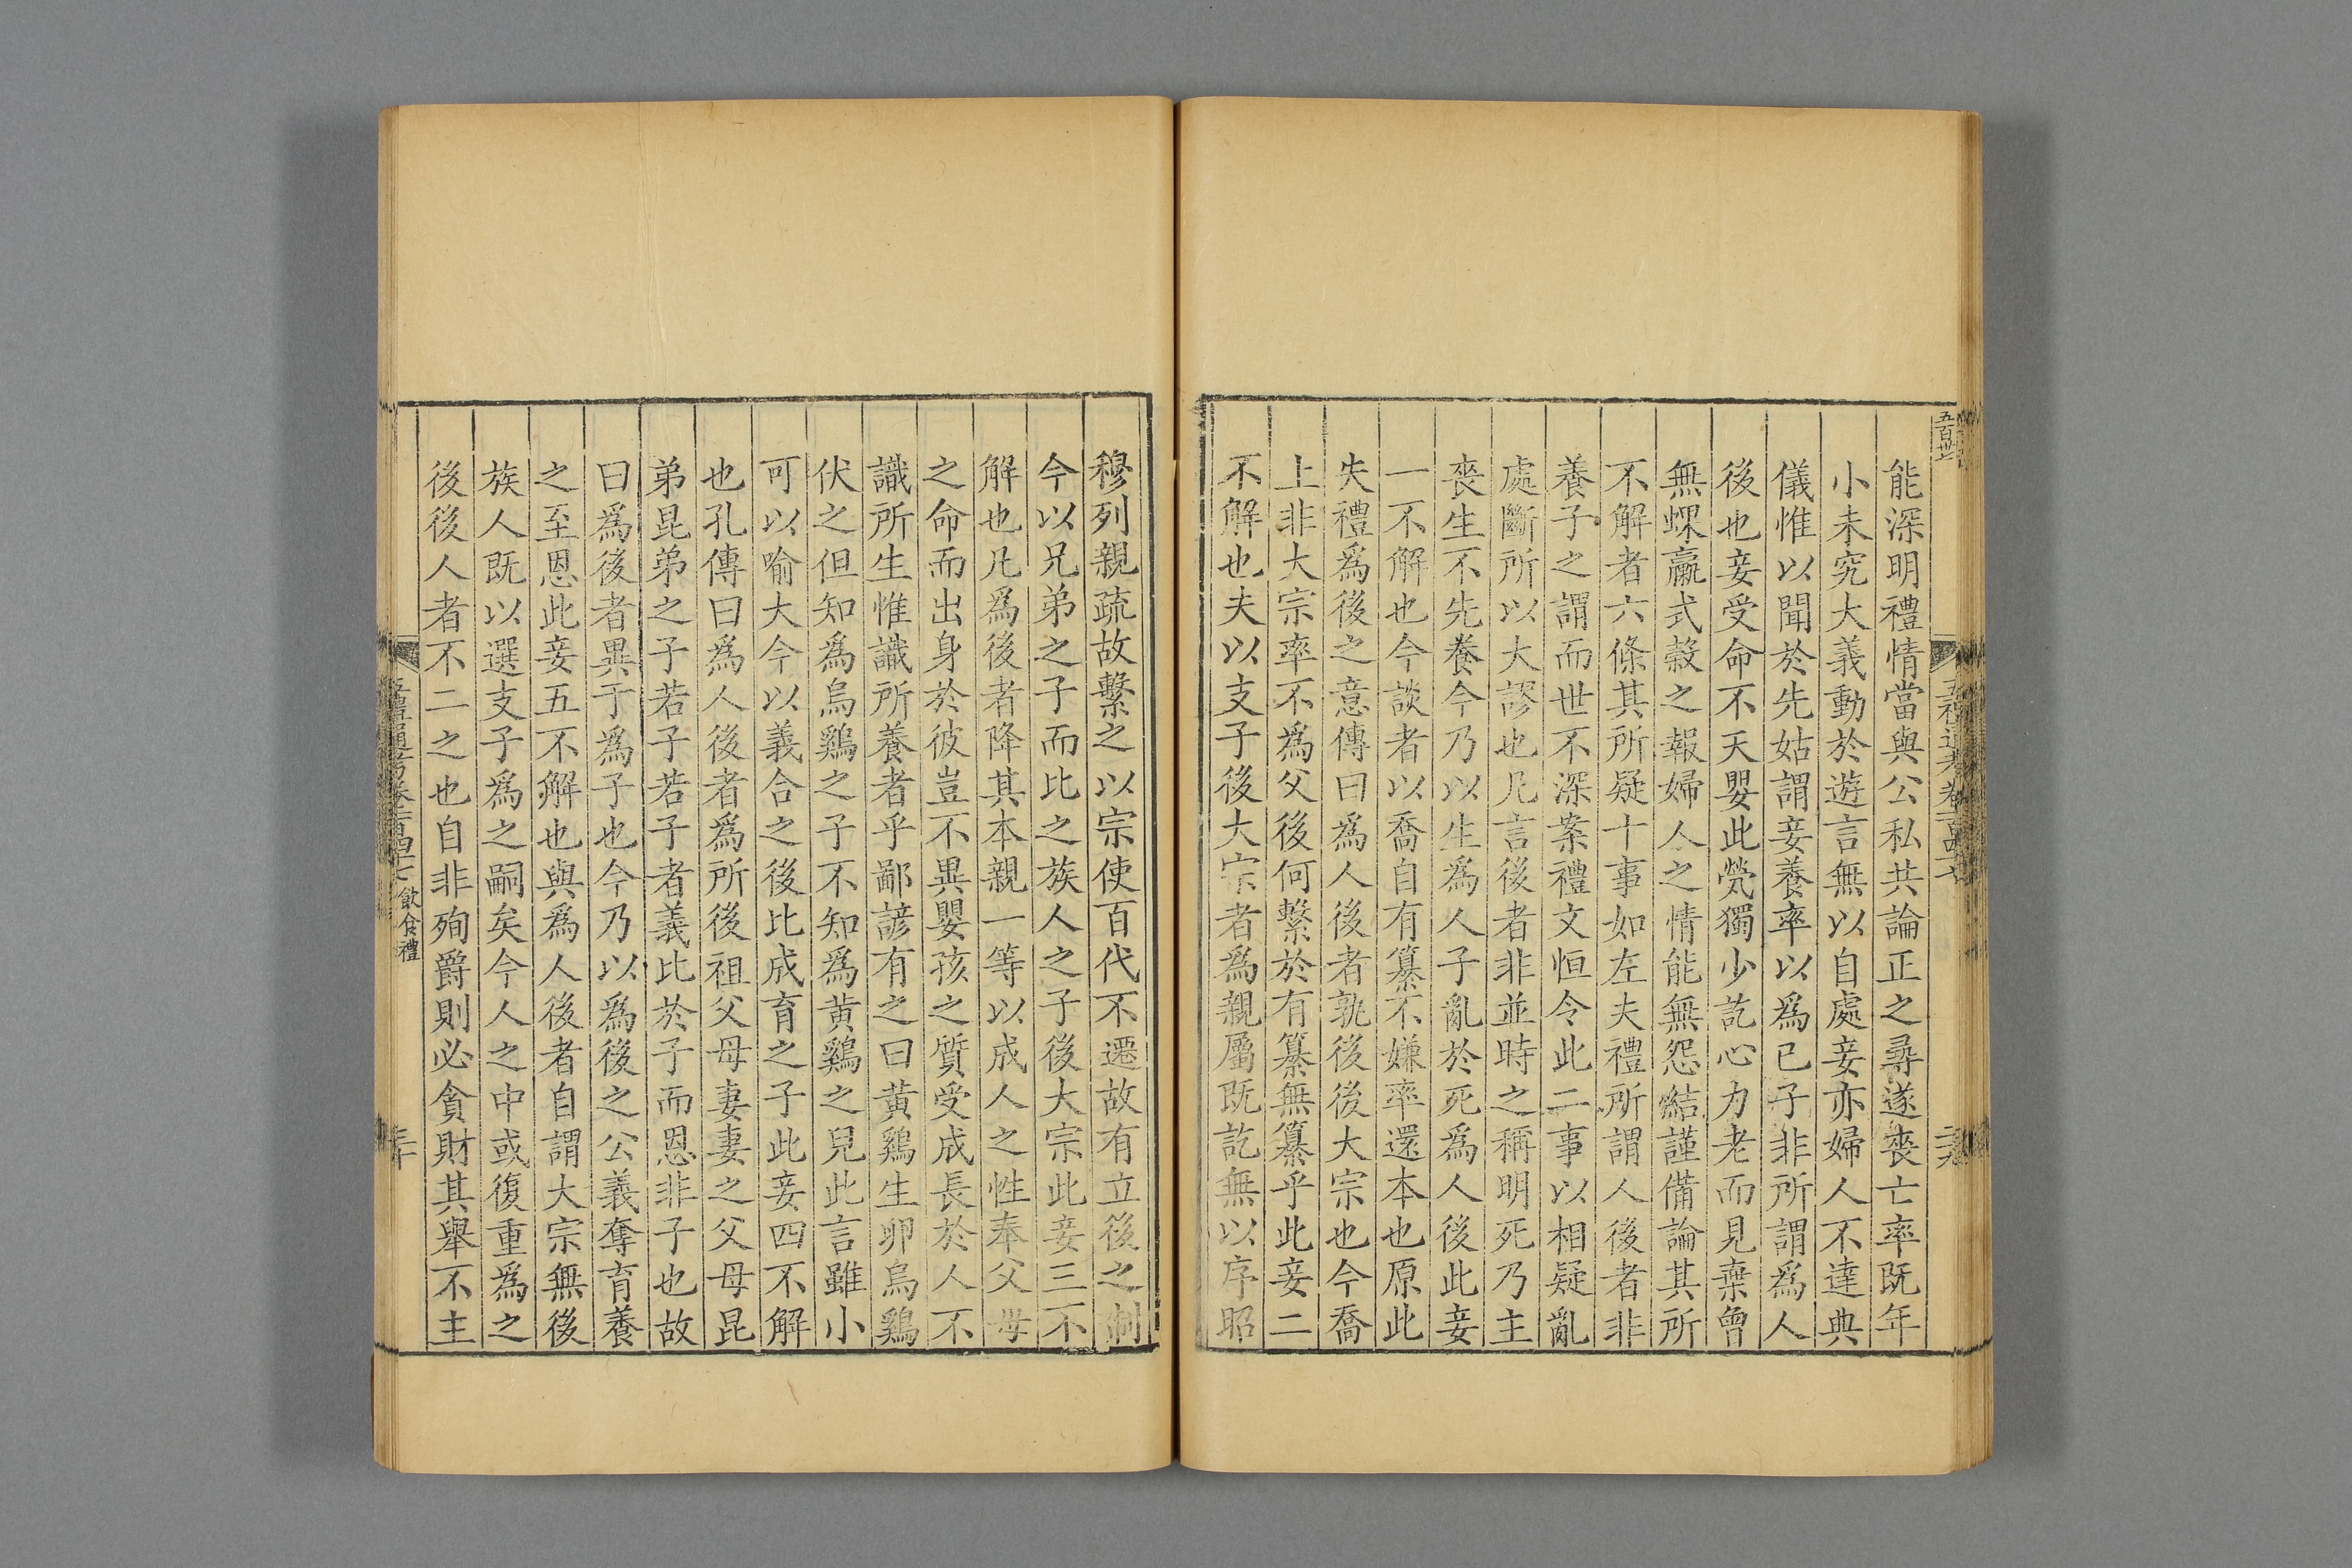 能深明禮情當與公私共論正之尋遂喪亡率既年
小未究大義動於遊言無以自處妾亦婦人不達典
儀惟以聞於先姑謂妾養率以為已子非所謂為人
後也妾受命不天嬰此煢獨少訖心力老而見棄曾
無蜾蠃式穀之報婦人之情能無怨結謹備論其所
不解者六條其所疑十事如左夫禮所謂人後者非
養子之謂而世不深案禮文恒令此二事以相疑亂
處斷所以大謬也凡言後者非並時之稱明死乃主
喪生不先養今乃以生為人子亂於死為人後此妾
一不解也今談者以喬自有纂不嫌率還本也原此
失禮為後之意傳曰為人後者孰後後大宗也今喬
上非大宗率不為父後何繫於有纂無纂乎此妾二
不解也夫以支子後大宗者為親屬既訖無以序昭
穆列親疏故繫之以宗使百代不遷故有立後之制
今以兄弟之子而比之族人之子後大宗此妾三不
解也凡為後者降其本親一等以成人之性奉父母
之命而出身於彼豈不異嬰孩之質受成長於人不
識所生惟識所養者乎鄙諺有之曰黃鷄生卵烏鷄
伏之但知為烏鷄之子不知為黃鷄之兒此言雖小
可以喻大今以義合之後比成育之子此妾四不解
也孔傳曰為人後者為所後祖父母妻妻之父母昆
弟昆弟之子若子若子者義比於子而恩非子也故
曰為後者異于為子也今乃以為後之公義奪育養
之至恩此妾五不解也與為人後者自謂大宗無後
族人既以選支子為之嗣矣今人之中或復重為之
後後人者不二之也自非殉爵則必貪財其舉不主
飲食禮